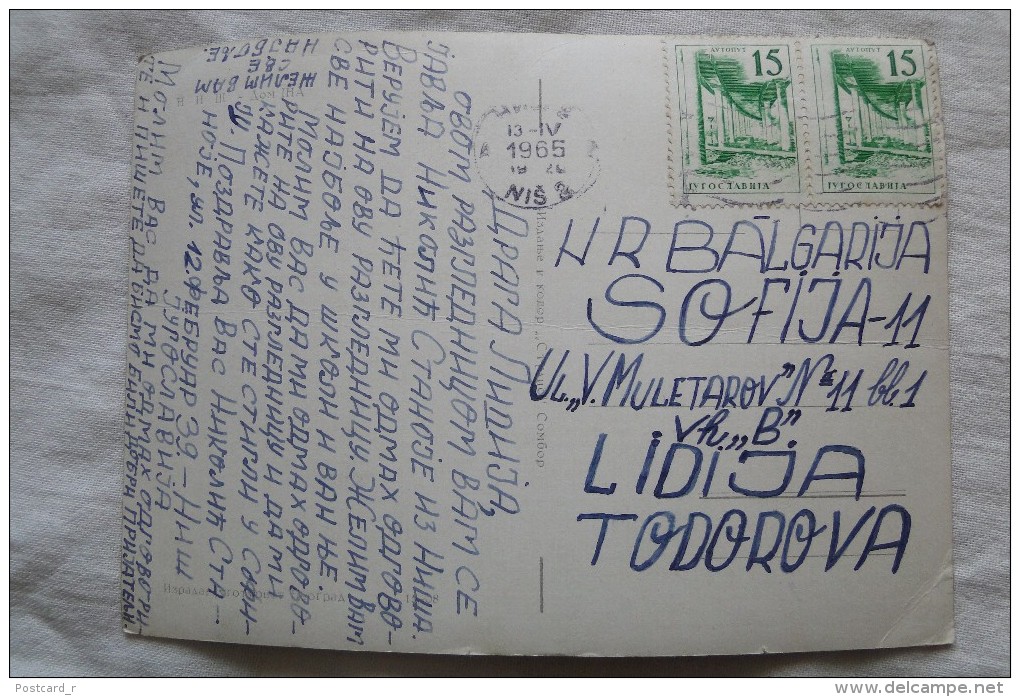 Драга Лидија,
Овом разгледницом вам се
јавља Николић Станоје из Ниша.
Верујем да ћете ми одмах одгово-
рити на ову разгледницу. Желим вам
све најбоље у школи и ван ње.
Молим вас да ми одмах одгово-
рите на ову разгледницу и да ми
кажете како сте стигли у Софи-
ју. Поздравља вас Николић Ста-
ноје, ул. 12. Фебруар 39 - Ниш
Југославија
Желим вам
све
најбоље.
Молим вас да ми одмах одговори-
те и пишете да бисмо били добри пријатељи.
НИШ
Дом ЈНА
13-IV
1965
NIŠ 2
АУТОПУТ
15
ЈУГОСЛАВИЈА
АУТОПУТ
15
ЈУГОСЛАВИЈА
N R BĂLGARIJA
SOFIJA-11
UL. „V. MULETAROV" № 11 bl. 1
vh. „B"
LIDIJA
TODOROVA
Сомбор
Postcard_r
www.delcampe.net